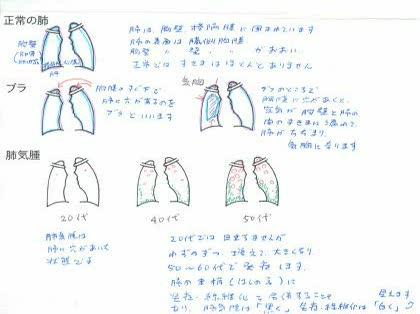 正常の肺
肺は、胸壁 横隔膜に囲まれています
肺の表面は 臓側胸膜
胸壁
胸壁 〃 〃 がおおい、
正常ではすきまはほとんどありません
ブラ
胸膜のすぐ下で
肺に穴があるのを
ブラといいます
気胸
ブラのところで
胸膜に穴があくと、
空気が胸壁と肺の
間のすきまに漏れて、
肺がちぢまり、
気胸になります
肺気腫
20代
40代
50代
肺気腫は
肺に穴があいた
状態です
20代では目立ちませんが
わずかずつ、増えて、大きくなり
50〜60代で発症します。
肺の末梢(はしのほう)に
炎症・線維化も合併すること
あり、肺気腫は「黒く」炎症・線維化は「白く」
見えます